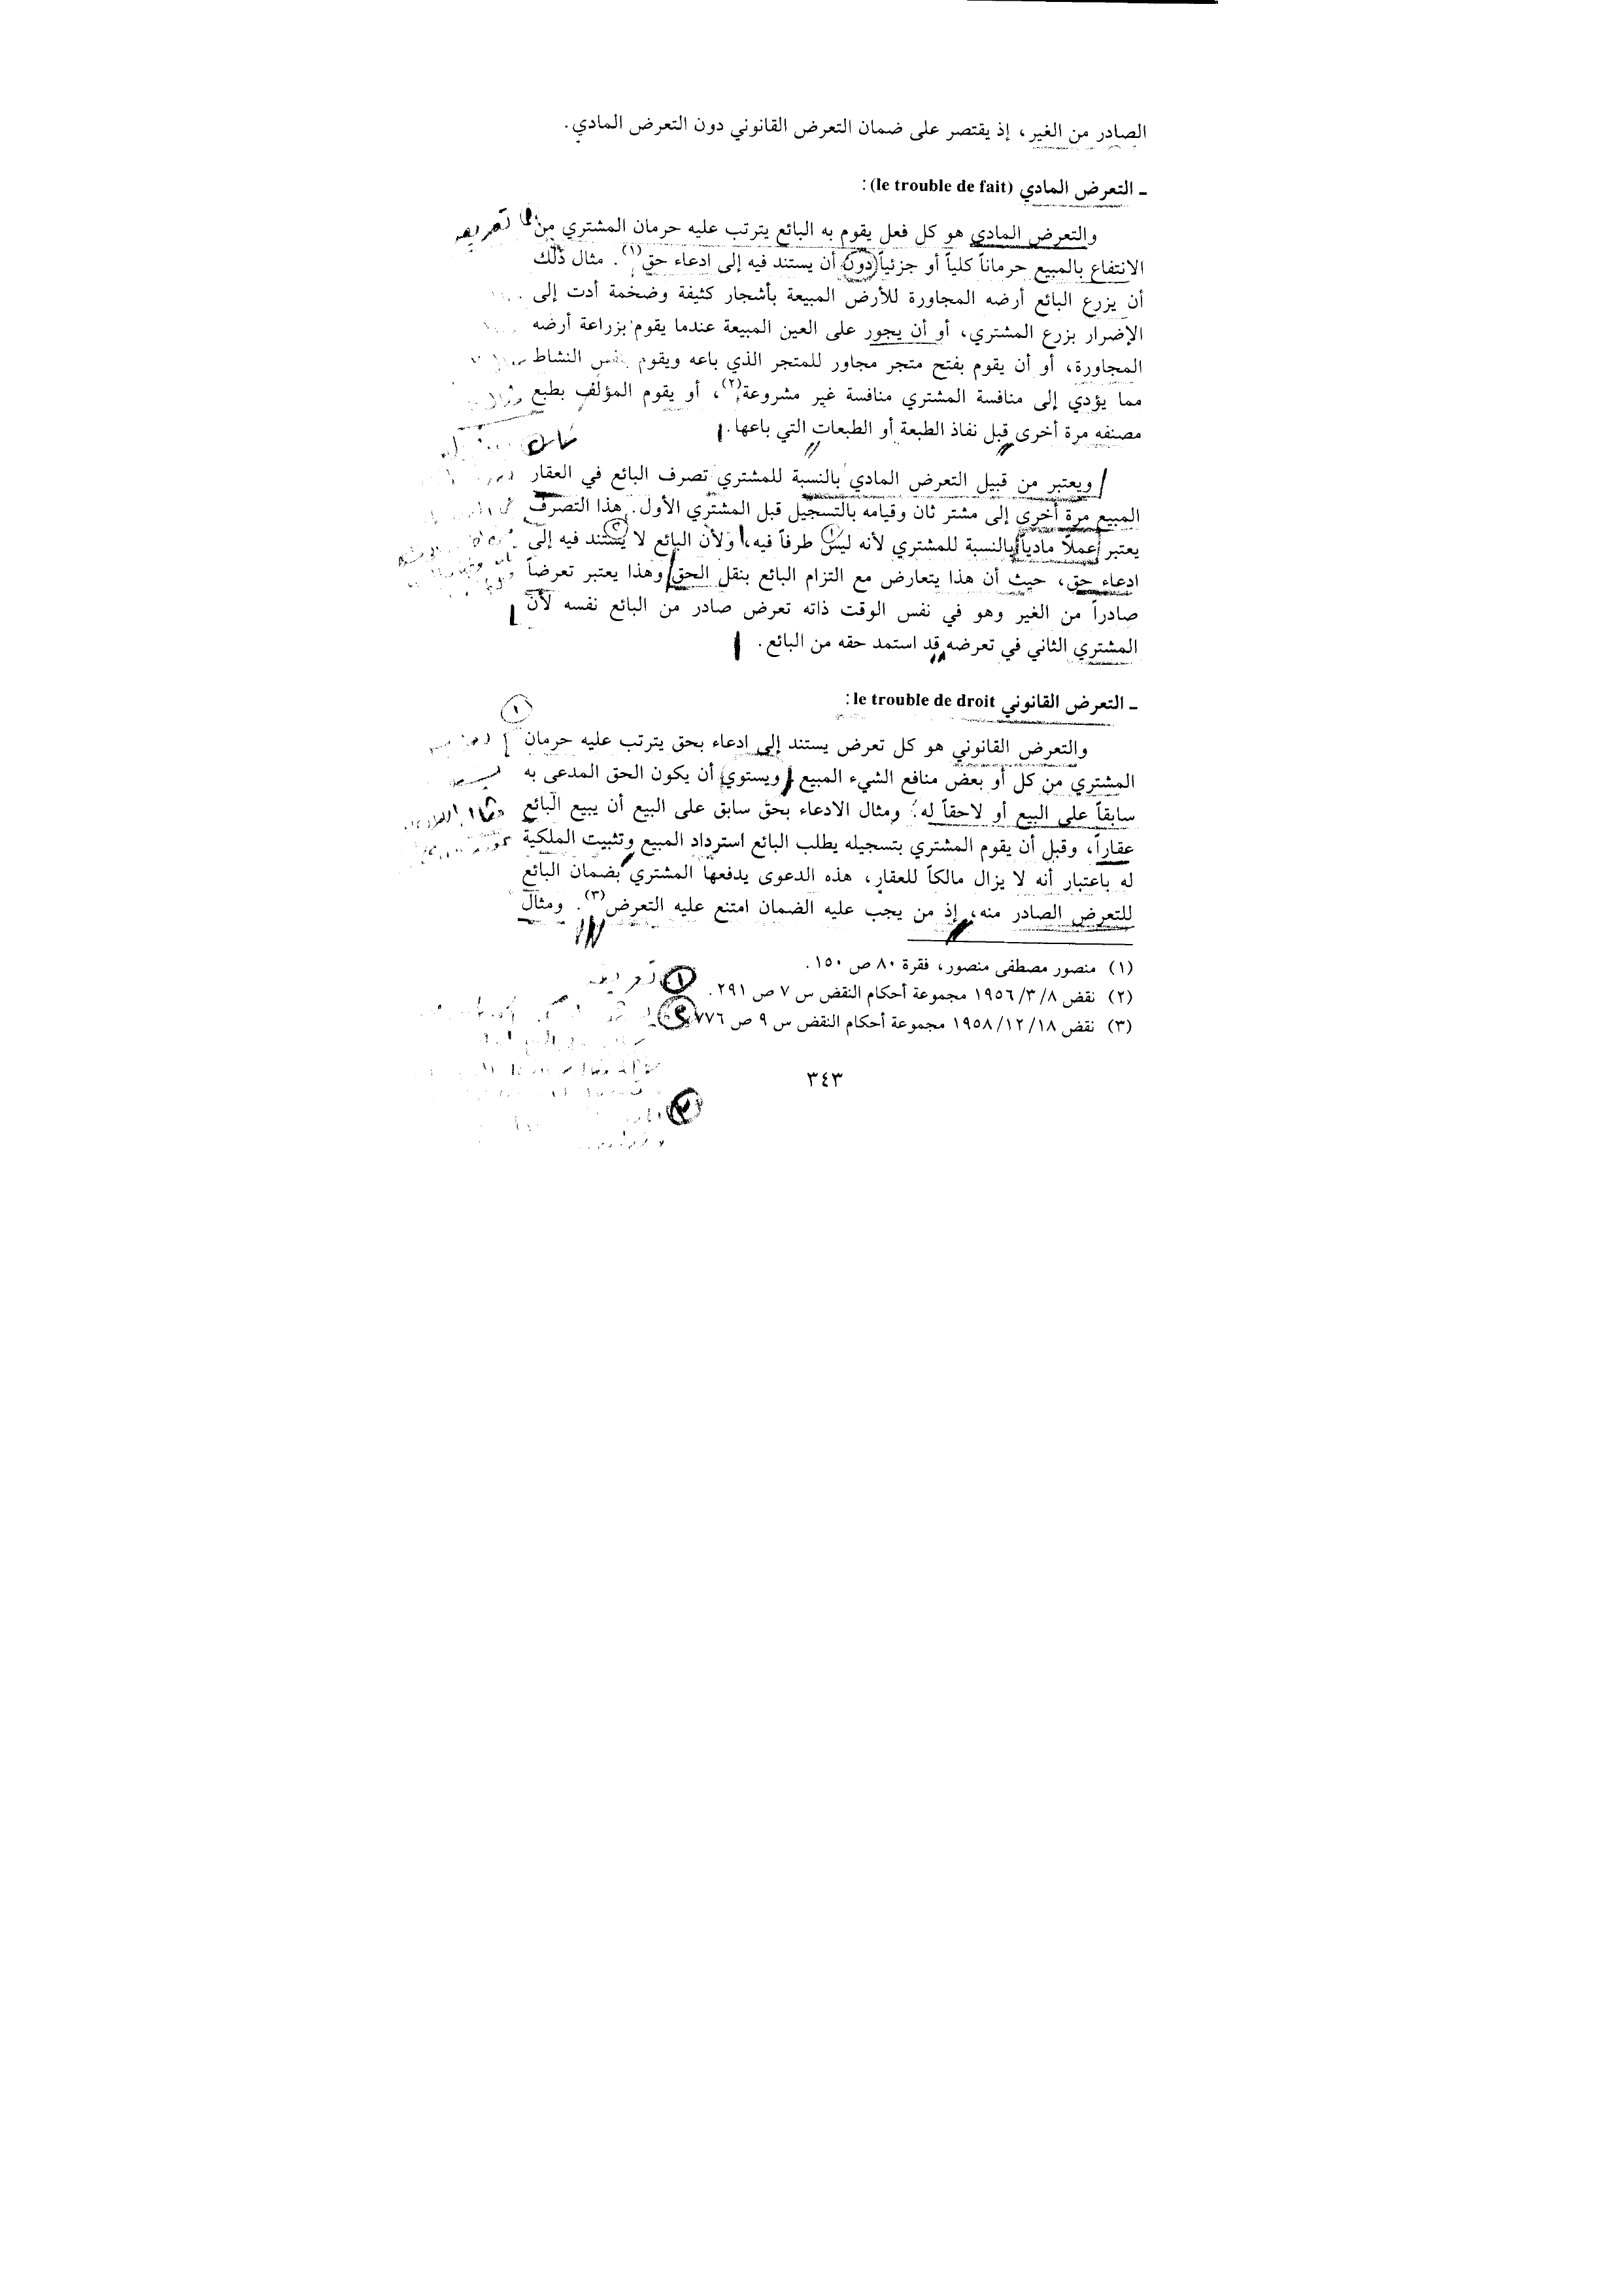 الصادر من الغير، إذ يقتصر على ضمان التعرض القانوني دون التعرض المادي.
ـ التعرض المادي (le trouble de fait):
والتعرض المادي هو كل فعل يقوم به البائع يترتب عليه حرمان المشتري من تعريف
الانتفاع بالمبيع حرماناً كلياً أو جزئياً دون أن يستند فيه إلى ادعاء حق(١). مثال ذلك
أن يزرع البائع أرضه المجاورة للأرض المبيعة بأشجار كثيفة وضخمة أدت إلى
الإضرار بزرع المشتري، أو أن يجور على العين المبيعة عندما يقوم بزراعة أرضه
المجاورة، أو أن يقوم بفتح متجر مجاور للمتجر الذي باعه ويقوم بنفس النشاط
مما يؤدي إلى منافسة المشتري منافسة غير مشروعة(٢)، أو يقوم المؤلف بطبع
مصنفه مرة أخرى قبل نفاذ الطبعة أو الطبعات التي باعها.
ويعتبر من قبيل التعرض المادي بالنسبة للمشتري تصرف البائع في العقار
المبيع مرة أخرى إلى مشتر ثان وقيامه بالتسجيل قبل المشتري الأول. هذا التصرف
يعتبر عملاً مادياً بالنسبة للمشتري لأنه ليس طرفاً فيه، ولأن البائع لا يستند فيه إلى
ادعاء حق، حيث أن هذا يتعارض مع التزام البائع بنقل الحق وهذا يعتبر تعرضاً
صادراً من الغير وهو في نفس الوقت ذاته تعرض صادر من البائع نفسه لأن
المشتري الثاني في تعرضه قد استمد حقه من البائع.
ـ التعرض القانوني le trouble de droit:
١
والتعرض القانوني هو كل تعرض يستند إلى ادعاء بحق يترتب عليه حرمان
المشتري من كل أو بعض منافع الشيء المبيع ويستوي أن يكون الحق المدعى به
سابقاً على البيع أو لاحقاً له. ومثال الادعاء بحق سابق على البيع أن يبيع البائع
عقاراً، وقبل أن يقوم المشتري بتسجيله يطلب البائع استرداد المبيع وتثبيت الملكية
له باعتبار أنه لا يزال مالكاً للعقار، هذه الدعوى يدفعها المشتري بضمان البائع
للتعرض الصادر منه، إذ من يجب عليه الضمان امتنع عليه التعرض(٣). ومثال
(١) منصور مصطفى منصور، فقرة ٨٠ ص ١٥٠.
(٢) نقض ١٩٥٦/٣/٨ مجموعة أحكام النقض س ٧ ص ٢٩١.
(٣) نقض ١٩٥٨/١٢/١٨ مجموعة أحكام النقض س ٩ ص ٧٧٦
٣٤٣